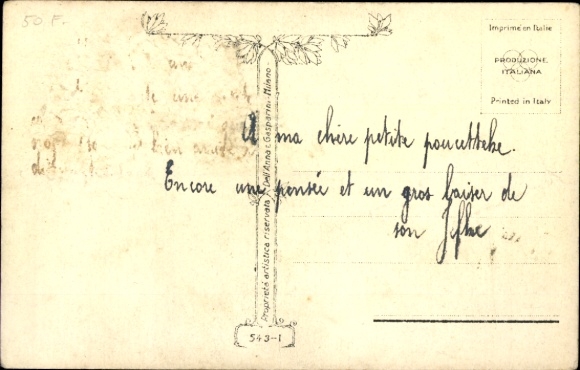 50 F.
Imprimé en Italie
PRODUZIONE
ITALIANA
Printed in Italy
un
une
bien
A ma chère petite poucetteke.
Encore une pensée et un gros baiser de
son Jefke
Proprietà artistica riservata Dell'Anna e Gasparini - Milano -
543-1